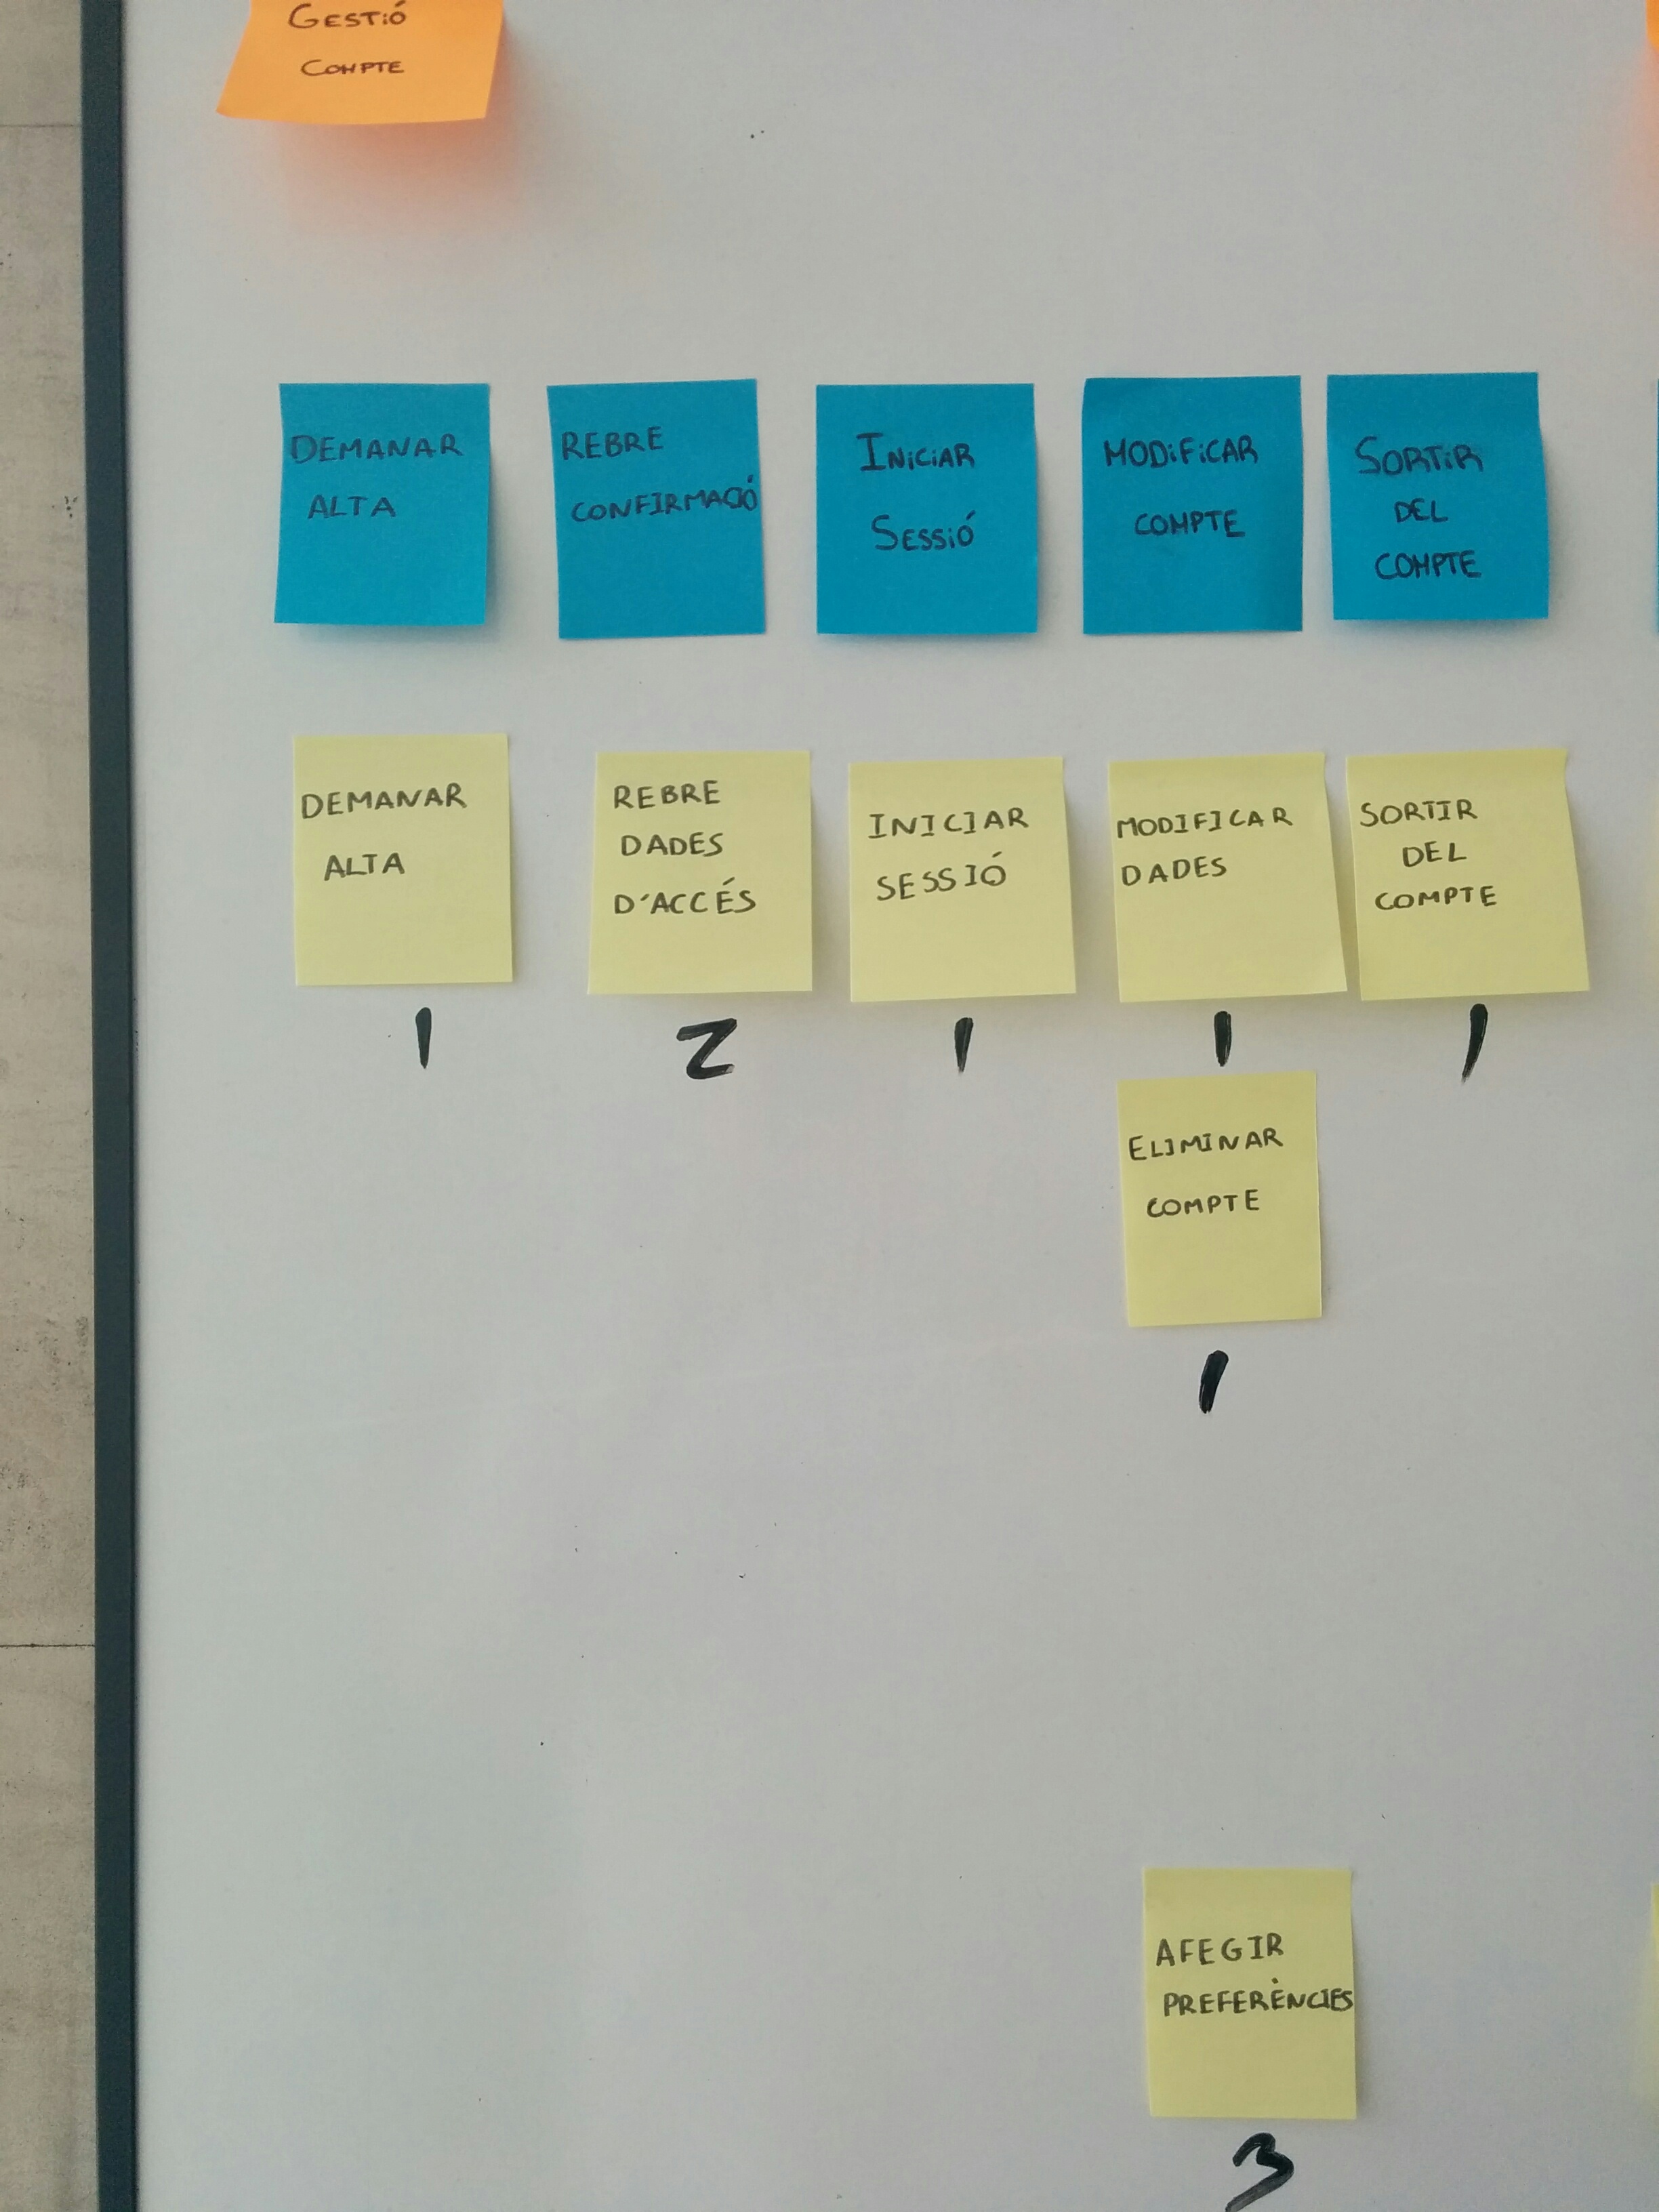 GESTIÓ
COMPTE
DEMANAR
ALTA
REBRE
CONFIRMACIÓ
INICIAR
SESSIÓ
MODIFICAR
COMPTE
SORTIR
DEL
COMPTE
DEMANAR
ALTA
1
REBRE
DADES
D'ACCÉS
2
INICIAR
SESSIÓ
1
MODIFICAR
DADES
1
SORTIR
DEL
COMPTE
1
ELIMINAR
COMPTE
1
AFEGIR
PREFERÈNCIES
3